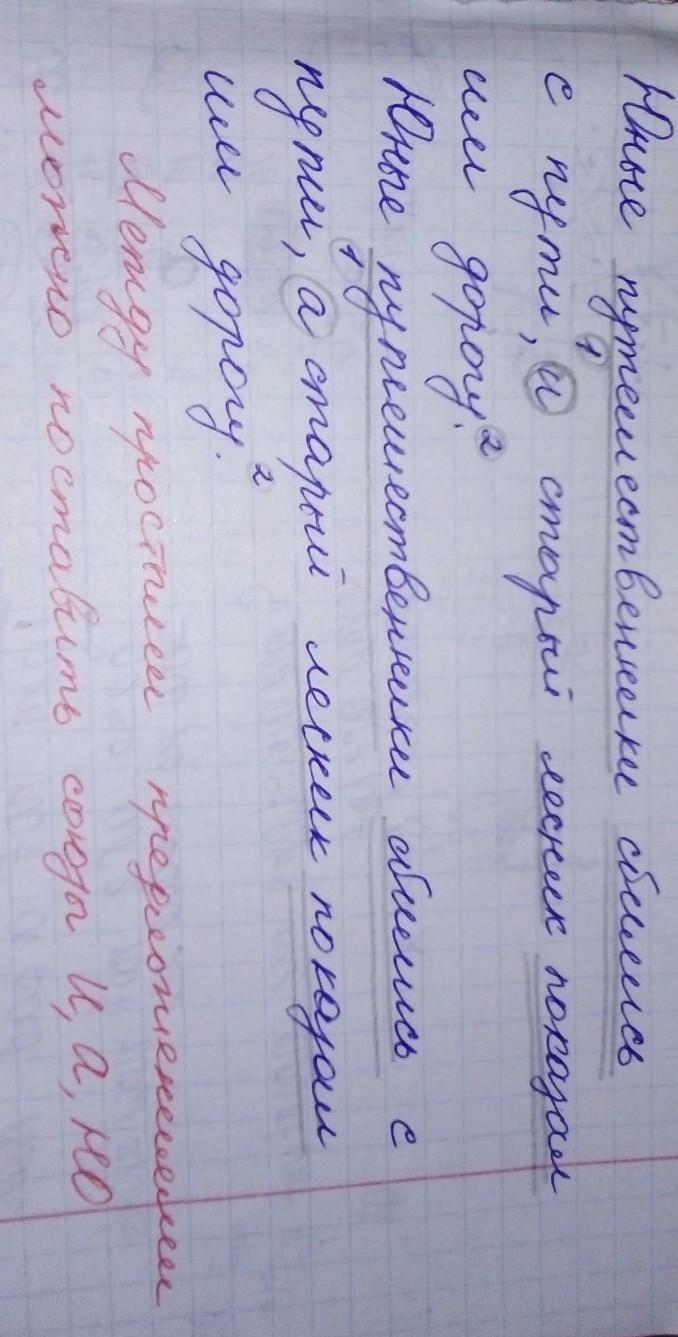 Юные путешественники сбились
с пути, и старый лесник показал
им дорогу.
Юные путешественники сбились с
пути, а старый лесник показал
им дорогу.
Между простыми предложениями
можно поставить союзы И, А, НО